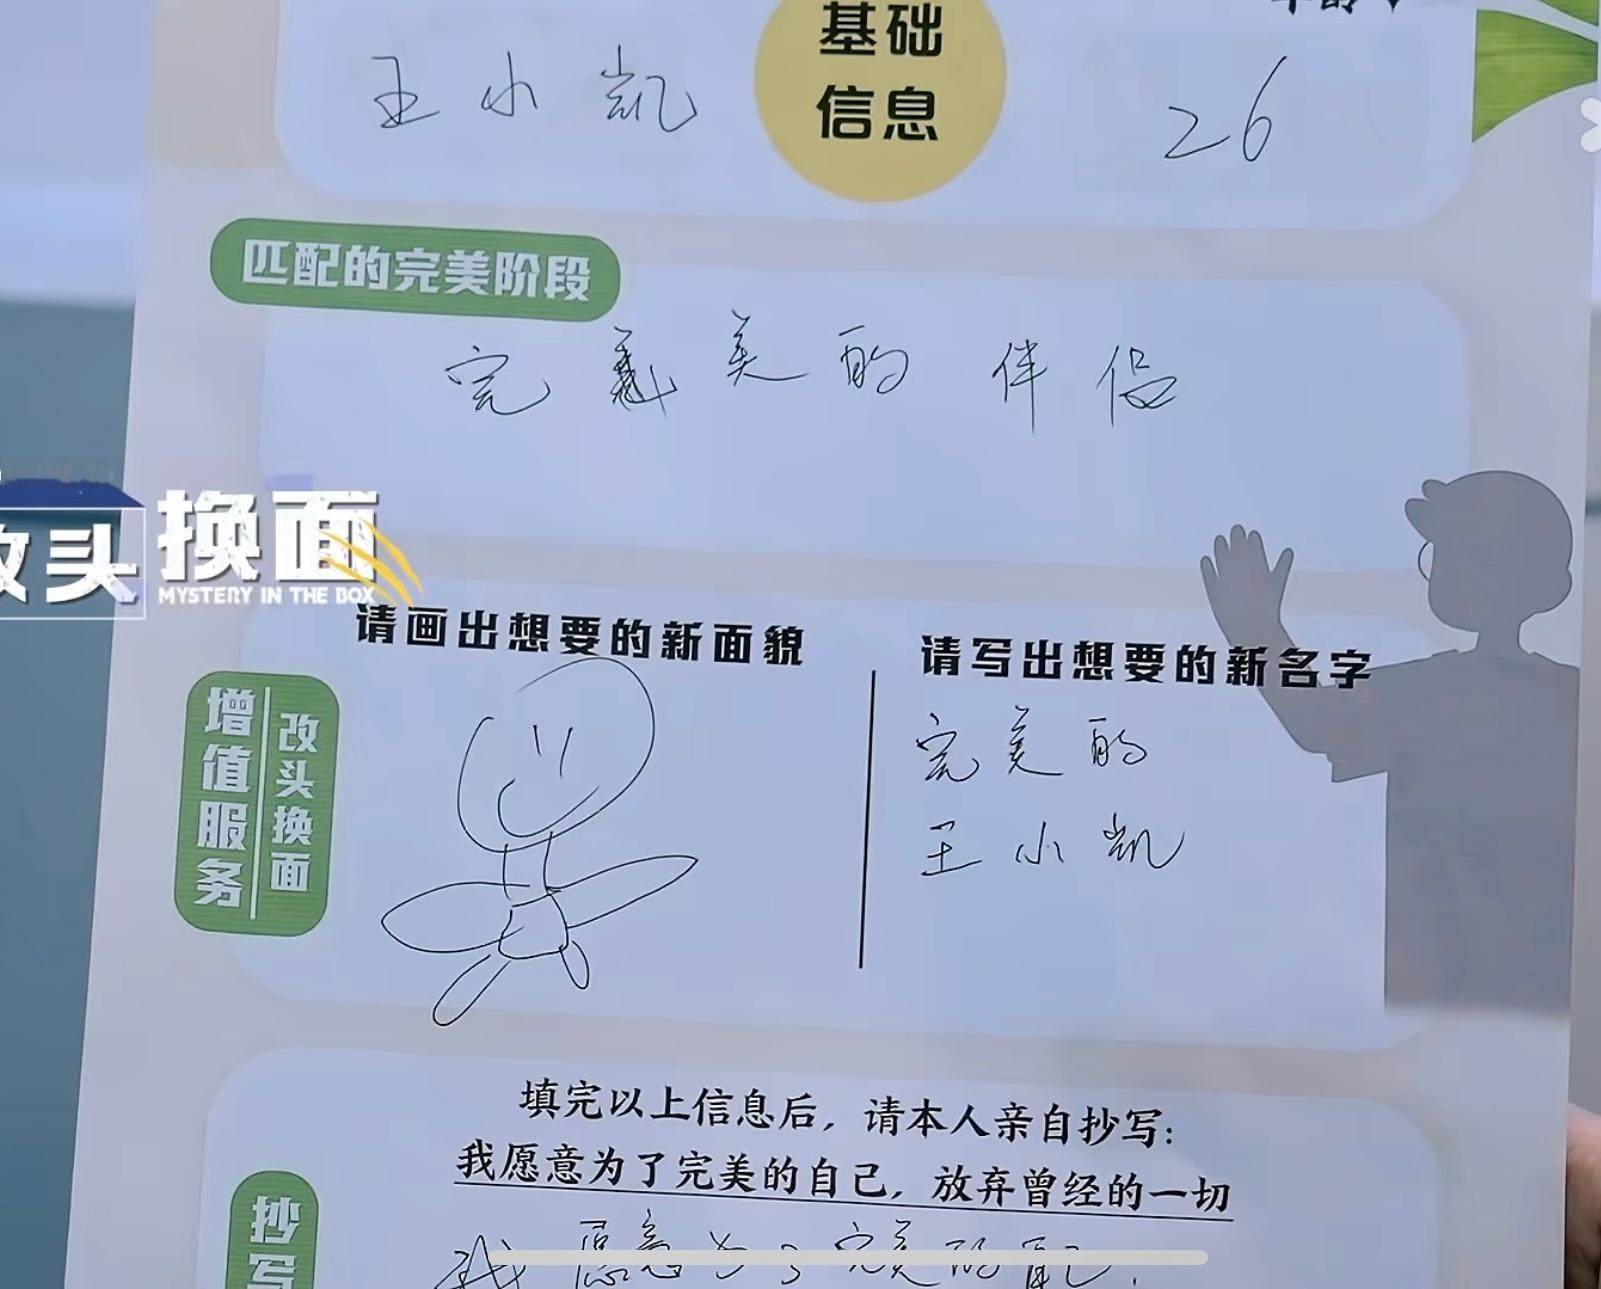 基础
信息
王小凯
26
匹配的完美阶段
完美的伴侣
改头换面
MYSTERY IN THE BOX
请画出想要的新面貌
请写出想要的新名字
增值服务
改头换面
完美的
王小凯
填完以上信息后，请本人亲自抄写：
我愿意为了完美的自己，放弃曾经的一切
抄写
我愿意为了完美的自己，